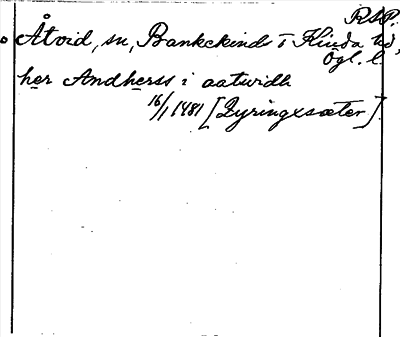 RSP.
Åtvid, sn, Bankekinds o Kinda hd,
Ögl. l.
her Andherss i aaturidh
16/1 1481 [Zyringxsæter]